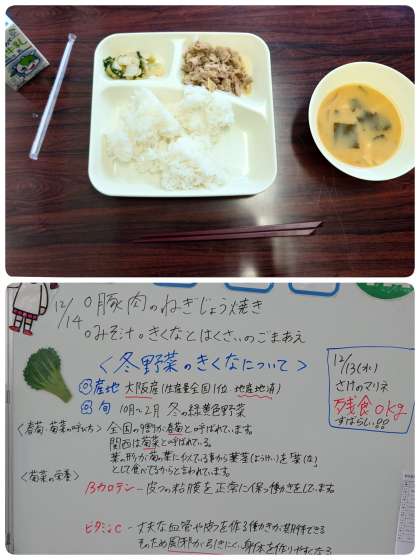 12/14 ○豚肉のねぎじょう焼き
○みそ汁○きくなとはくさいのごまあえ
<冬野菜のきくなについて>
◎産地 大阪産(生産量全国1位・地産地消)
◎旬 10月〜2月 冬の緑黄色野菜
<春菊・菊菜の呼び方> 全国の9割が春菊と呼ばれています。
関西は菊菜と呼ばれている。
葉の形が菊の葉に似ている事から葉茎(ようけい)を「菜(な)」
として食べてるからと言われています。
<菊菜の栄養>
βカロテン-皮ふの粘膜を正常に保つ働きをしています。
ビタミンC-丈夫な血管や肉を作る働きが期待できる
そのため風邪が引きにくい身体を作りやすくなる
12/13(水)
さけのマリネ
残食0kg
すばらしい!!